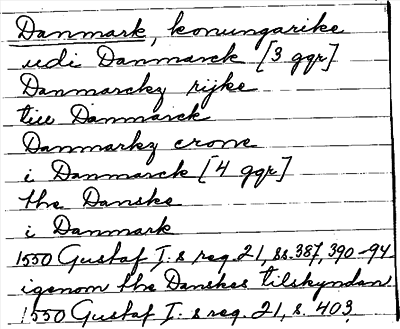 Danmark, konungarike
udi Danmarck [3 ggr]
Danmarckz rijke
till Danmarck
Danmarkz crone
i Danmarck [4 ggr]
the Danske
i Danmark
1550 Gustaf I:s reg. 21, ss. 387, 390-94
igenom the Danskes tilskyndan
1550 Gustaf I:s reg. 21, s. 403